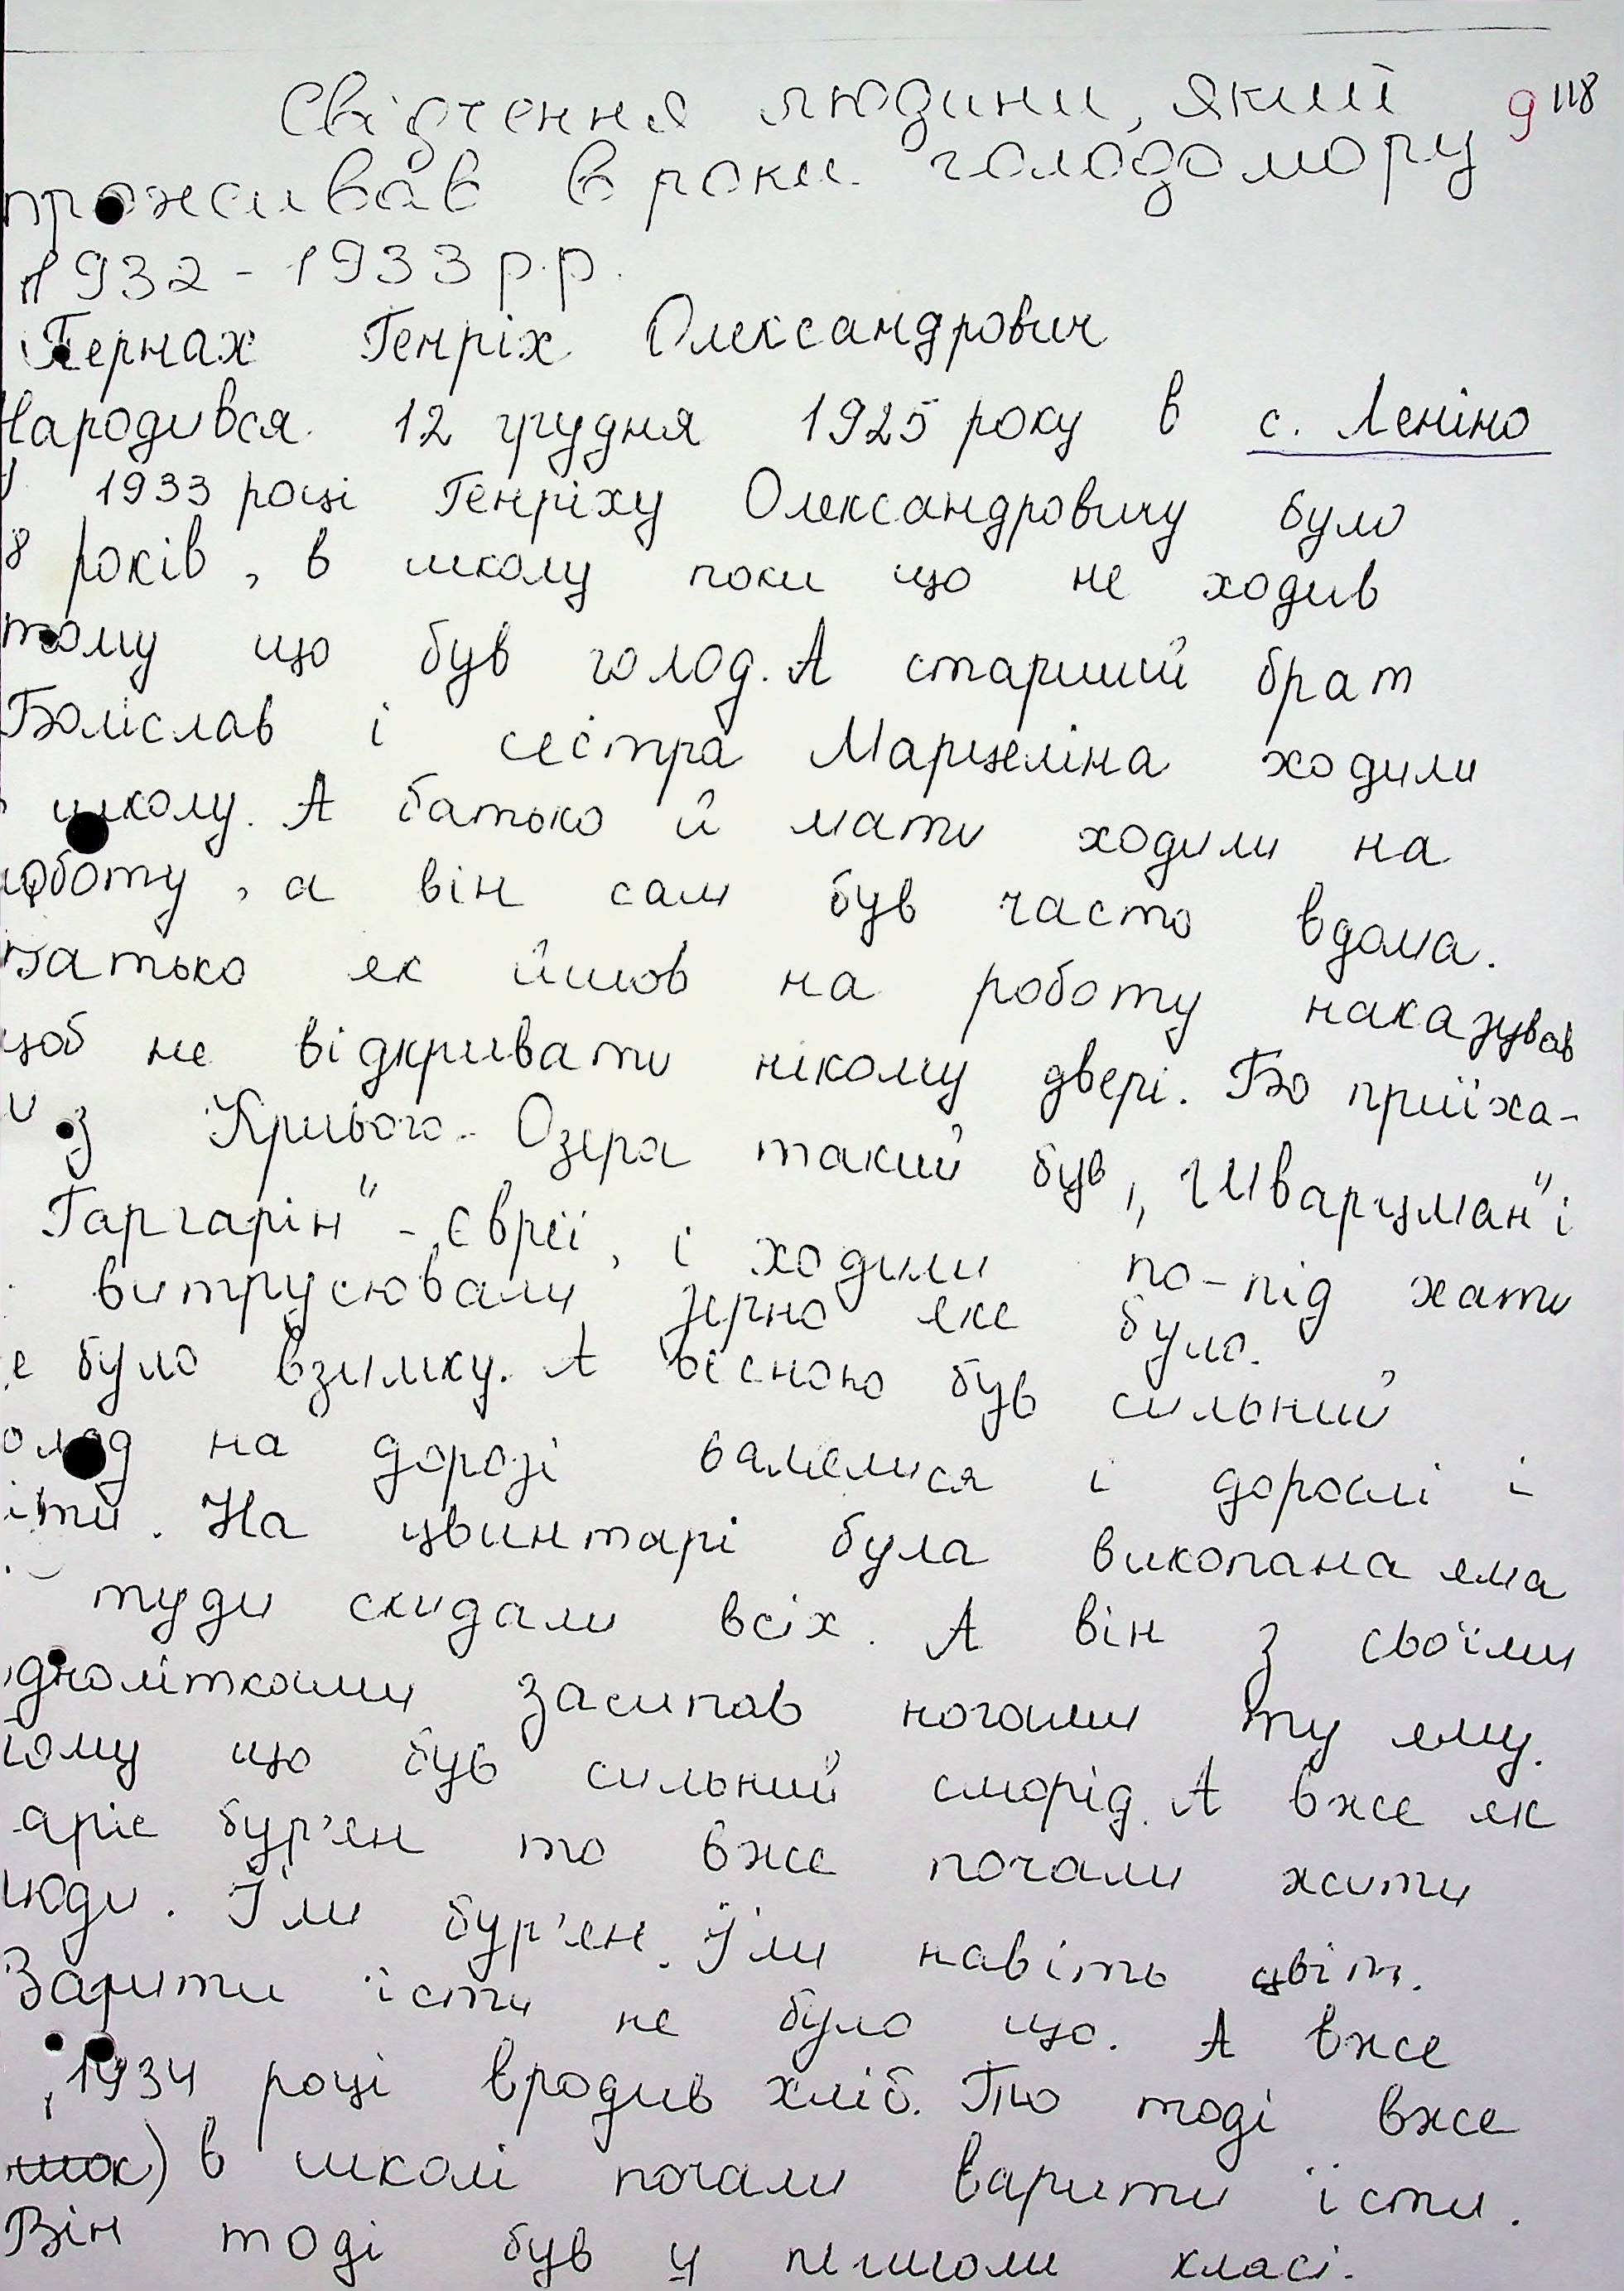 118
9
Свідчення людини, який
проживав в роки голодомору
1932 - 1933 р.р.
Гернах Генріх Олександрович
Народився 12 грудня 1925 року в с. Леніно
У 1933 році Генріху Олександровичу було
8 років, в школу поки що не ходив
тому що був голод. А старший брат
Боліслав і сестра Марцеліна ходили
школу. А батько й мати ходили на
роботу, а він сам був часто вдома.
Батько як йшов на роботу наказував
щоб не відкривати нікому двері. Бо приїха-
и з Кривого Озера такий був „Шварцман" і
Гаргарін" - євреї, і ходили по-під хати
витрусювали зерно яке було.
е було взимку. А весною був сильний
олод на дорозі валялися і дорослі і
іти. На цвинтарі була викопана яма
туди скидали всіх. А він з своїми
однолітками засипав ногами ту яму.
тому що був сильний сморід. А вже як
аріс бур'ян то вже почали жити
люди. Їли бур'ян. Їли навіть цвіт.
Варити їсти не було що. А вже
1934 році вродив хліб. То тоді вже
шок) в школі почали варити їсти.
Він тоді був у першом класі.